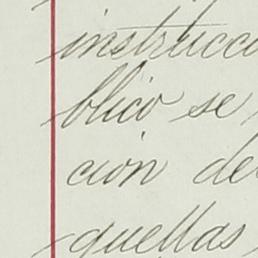 instrucci
blico se
ción de
quellas